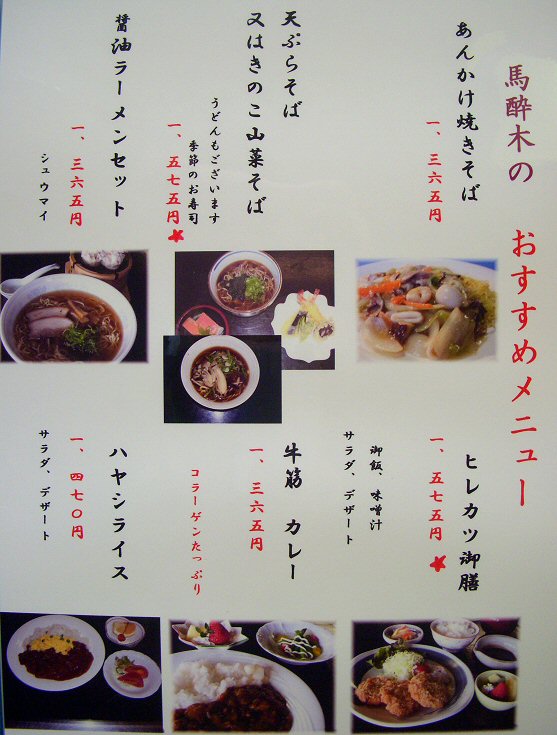 馬酔木の おすすめメニュー
あんかけ焼きそば
一、三六五円
天ぷらそば
又はきのこ山菜そば
うどんもございます
季節のお寿司
一、五七五円★
醤油ラーメンセット
一、三六五円
シュウマイ
ヒレカツ御膳
一、五七五円★
御飯、味噌汁
サラダ、デザート
牛筋 カレー
一、三六五円
コラーゲンたっぷり
ハヤシライス
一、四七〇円
サラダ、デザート